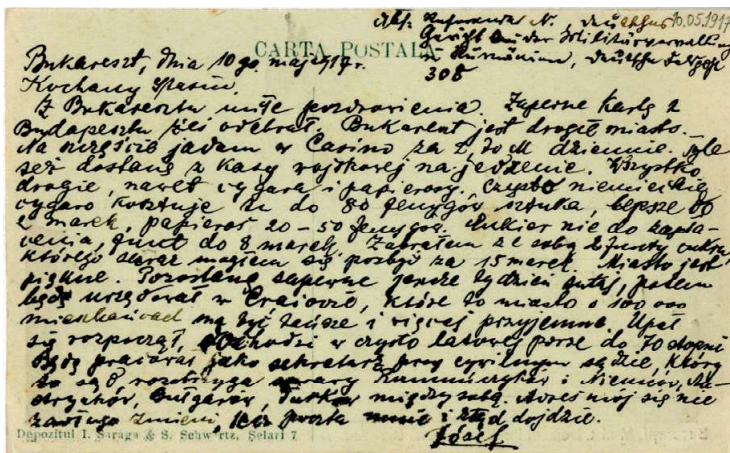 Abs: N., Deutsches 10.05.1917
Gericht der Militärverwaltung
CARTA POSTALA
in Rumänien, Deutsche Feldpost
Bukareszt, dnia 10 go maj 1917 r.
308
Kochany
Z Bukaresztu miłe pozdrowienia. Zapewne kartę z
Budapesztu żeś odebrał. Bukareszt jest drogie miasto.
Na szczęście jadam w Casino za 2,70 M dziennie. Tyle
też dostanę z kasy wojskowej na jedzenie. Wszystko
drogie, nawet cygara i papierosy. Często niemieckie
cygaro kosztuje tu do 80 fenygów sztuka, lepsze do
2 marek, papieros 20-50 fenygów. Cukier nie do zapła-
cenia, funt do 8 marek. Zabrałem ze sobą 2 funty cukru
którego zaraz mogłem się pozbyć za 15 marek. Miasto jest
piękne. Pozostanę zapewne jeszcze tydzień tutaj, potem
będę urzędował w Craiovie, które to miasto o 100 000
mieszkańcach ma być tańsze i więcej przyjemne. Upał
się rozpoczął, dochodzi w czysto latowej porze do 70 stopni
Będę pracował jako sekretarz przy cywilnym sądzie, który
to sąd rozstrzyga sprawy Rumuńczyków i Niemców, Au-
stryaków, Bułgarów, Turków między sobą. Adres mój się nie
zadługo zmieni, lecz poczta mnie i stąd dojdzie.
Józef
Depozitul I. Saraga & S. Schwartz, Selari 7